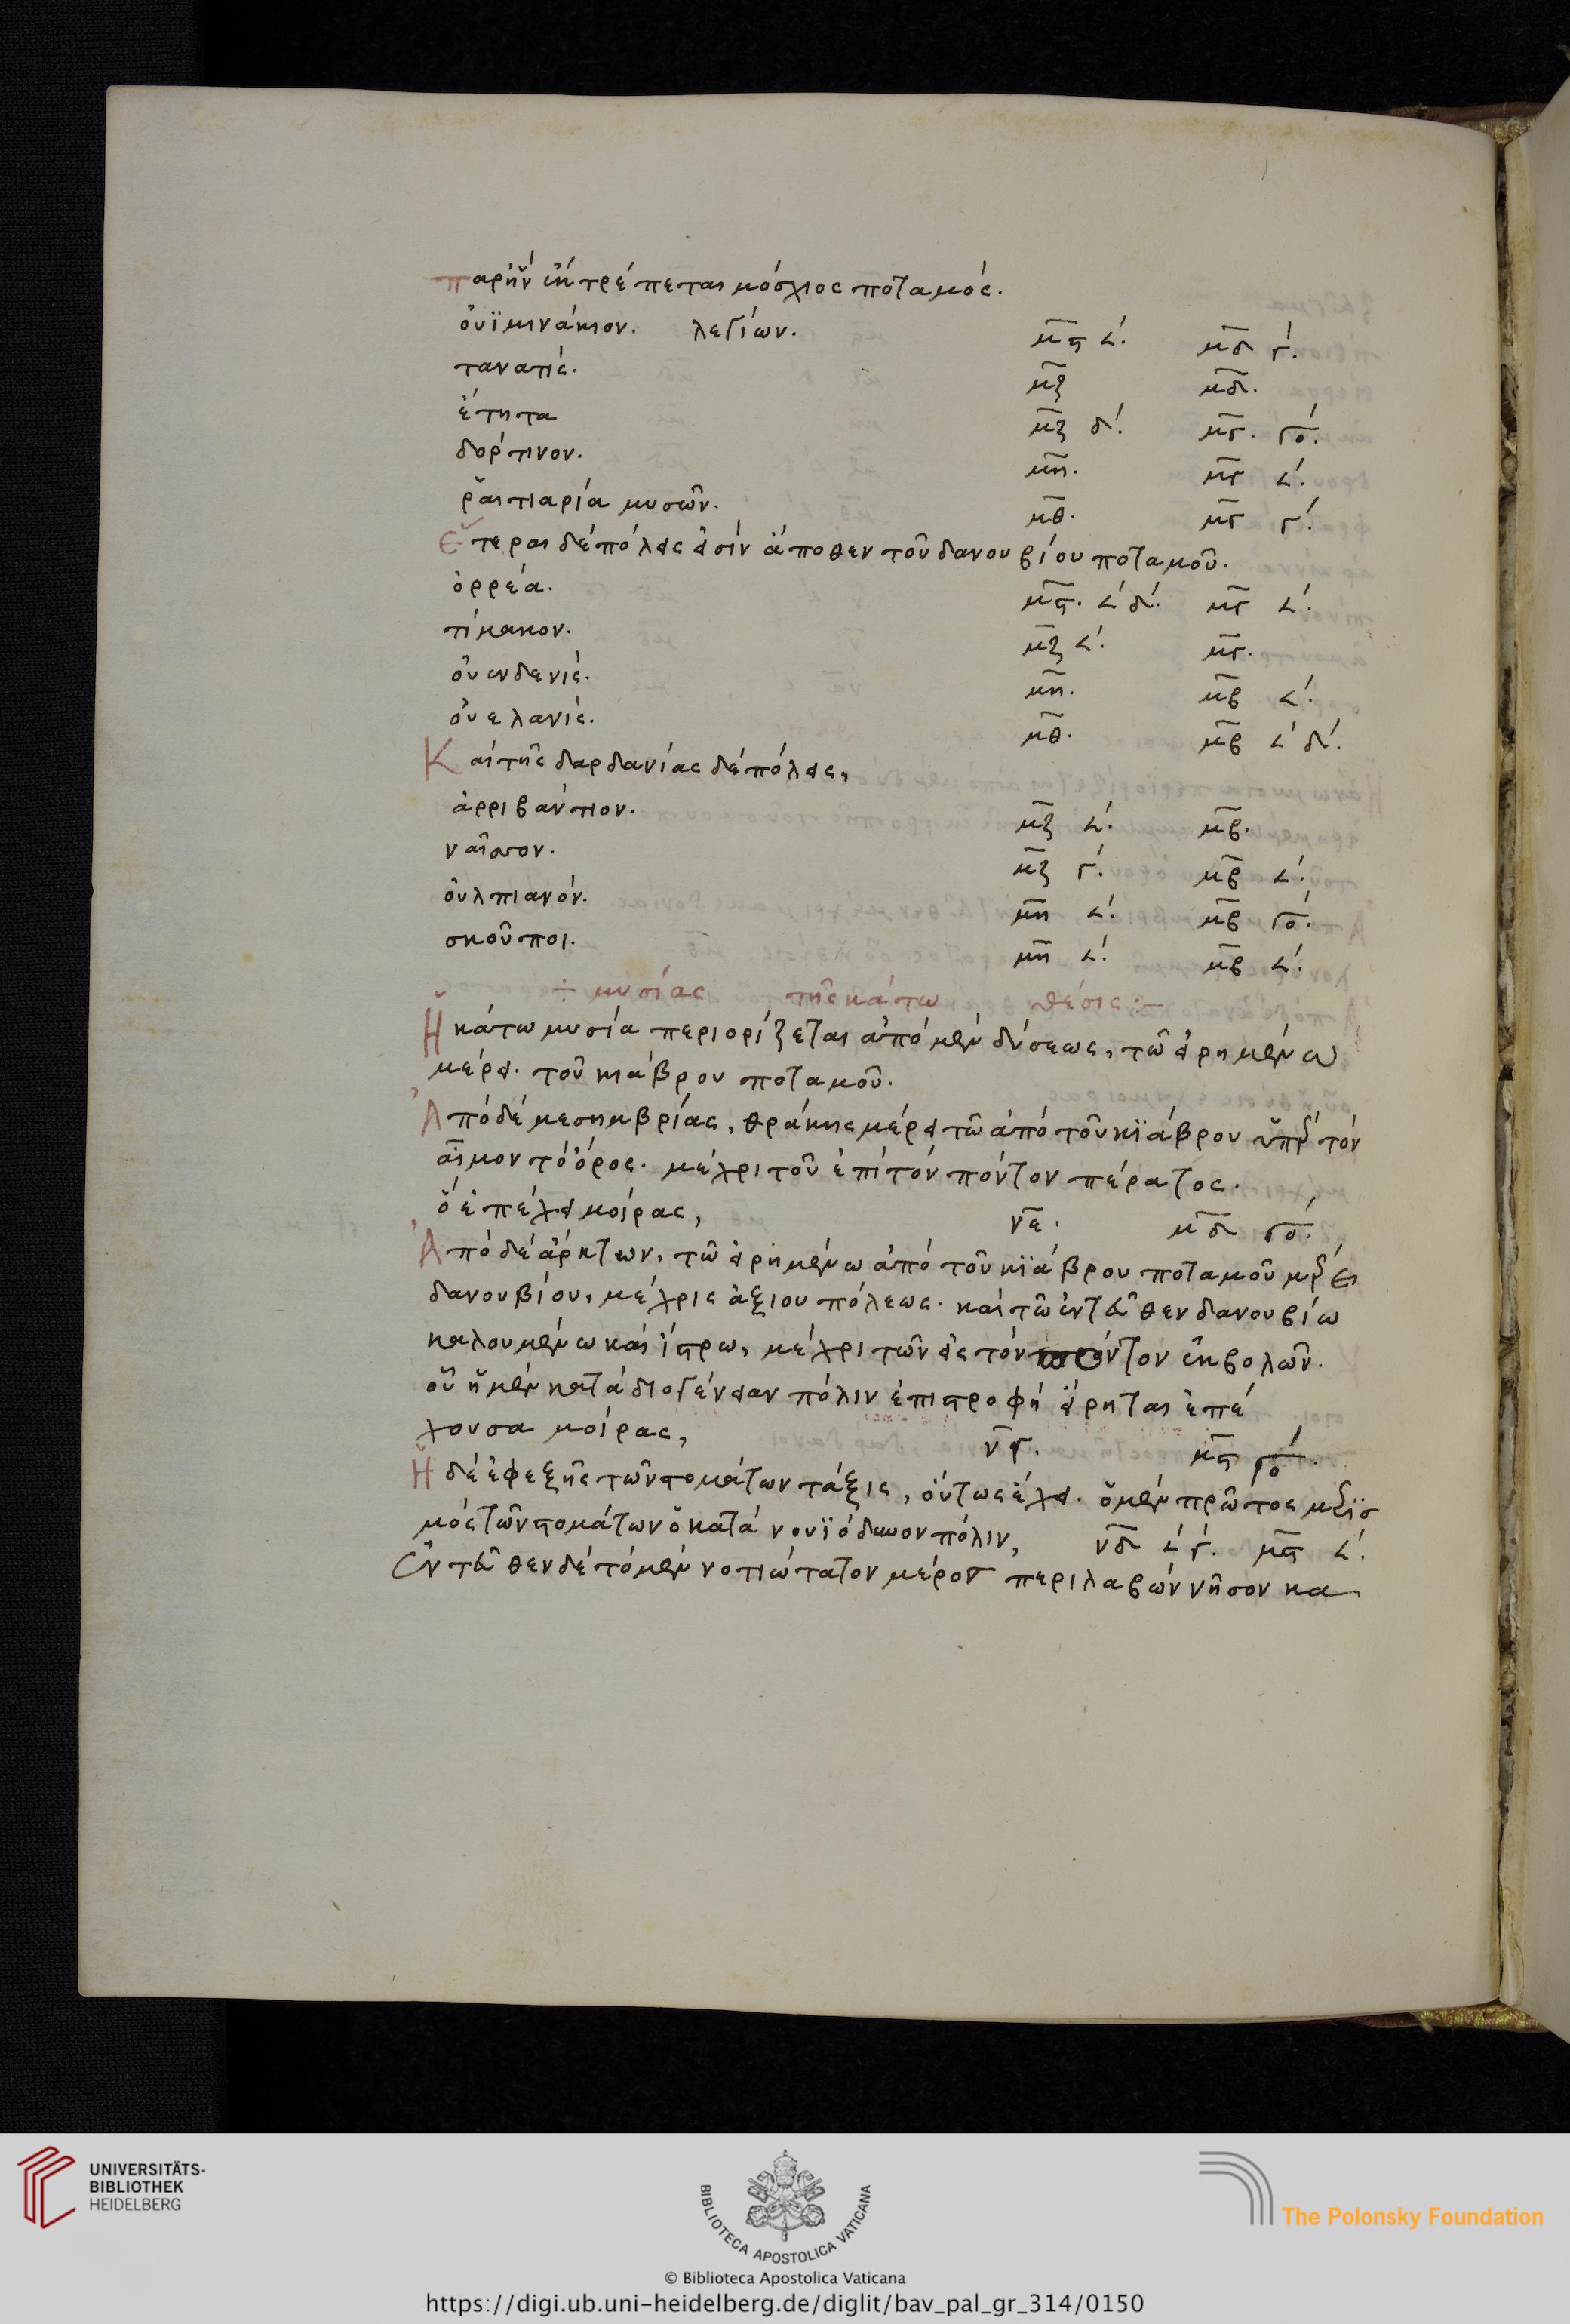 παρ' ἣν ἐκτρέπεται μόσχιος ποταμός.
οὐϊμινάκιον. λεγίων. μ̅ϛ̅ ∠΄. μ̅δ̅ γ΄.
τανατίς. μ̅ζ̅ μ̅δ̅.
ἔτητα μ̅ζ̅ δ΄. μ̅γ̅. γο΄.
δορτινον. μ̅η̅. μ̅γ̅ ∠΄.
ῥαιτιαρία μυσῶν. μ̅θ̅. μ̅γ̅ γ΄.
Ἕτεραι δὲ πόλεις εἰσὶν ἄποθεν τοῦ δανουβίου ποταμοῦ.
ὀρρέα. μ̅ϛ̅. ∠΄ δ΄. μ̅γ̅ ∠΄.
τίμακον. μ̅ζ̅ ∠΄. μ̅γ̅.
οὐενδενίς. μ̅η̅. μ̅β̅ ∠΄.
οὐελανίς. μ̅θ̅. μ̅β̅ ∠΄ δ΄.
Καὶ τῆς δαρδανίας δὲ πόλεις,
ἀρριβάντιον. μ̅ζ̅ ∠΄. μ̅β̅.
ναϊσσον. μ̅ζ̅ γ΄. μ̅β̅ ∠΄.
οὐλπιανόν. μ̅η̅ ∠΄. μ̅β̅ γο΄.
σκοῦποι. μ̅η̅ ∠΄. μ̅β̅ ∠΄.
÷ μυσίας τῆς κάτω θέσις :-
Ἡ κάτω μυσία περιορίζεται ἀπὸ μὲν δύσεως, τῶ εἰρημένω
μέρει. τοῦ κιάβρου ποταμοῦ.
Ἀπὸ δὲ μεσημβρίας, θράκης μέρει τῶ ἀπὸ τοῦ κϊάβρου ὑπὲρ τὸν
αἷμον τὸ ὄρος. μέχρι τοῦ ἐπὶ τὸν πόντον πέρατος.
ὃ ἐπέχει μοίρας, ν̅ε̅. μ̅δ̅ γο΄.
Ἀπὸ δὲ ἄρκτων, τῶ εἰρημένω ἀπὸ τοῦ κϊάβρου ποταμοῦ μέρει
δανουβίου, μέχρις ἀξίου πόλεως. καὶ τῶ ἐντεῦθεν δανουβίω
καλουμένω καὶ ἴστρω, μέχρι τῶν εἰς τὸν πόντον ἐκβολῶν.
οὗ ἡ μὲν κατὰ διογένειαν πόλιν ἐπιστροφὴ εἴρηται ἐπέ
χουσα μοίρας, ν̅γ̅. μ̅ϛ̅ γο΄.
Ἡ δὲ ἐφεξῆς τῶν στομάτων τάξις, οὕτως ἔχει. ὁ μὲν πρῶτος μερϊσ
μὸς τῶν στομάτων ὁ κατὰ νουϊόδουνον πόλιν, ν̅δ̅ ∠΄ γ΄. μ̅ϛ̅ ∠΄.
Ἐντεῦθεν δὲ τὸ μὲν νοτιώτατον μέρος περιλαβὼν νῆσον κα
UNIVERSITÄTS-
BIBLIOTHEK
HEIDELBERG
BIBLIOTECA APOSTOLICA VATICANA
© Biblioteca Apostolica Vaticana
The Polonsky Foundation
https://digi.ub.uni-heidelberg.de/diglit/bav_pal_gr_314/0150